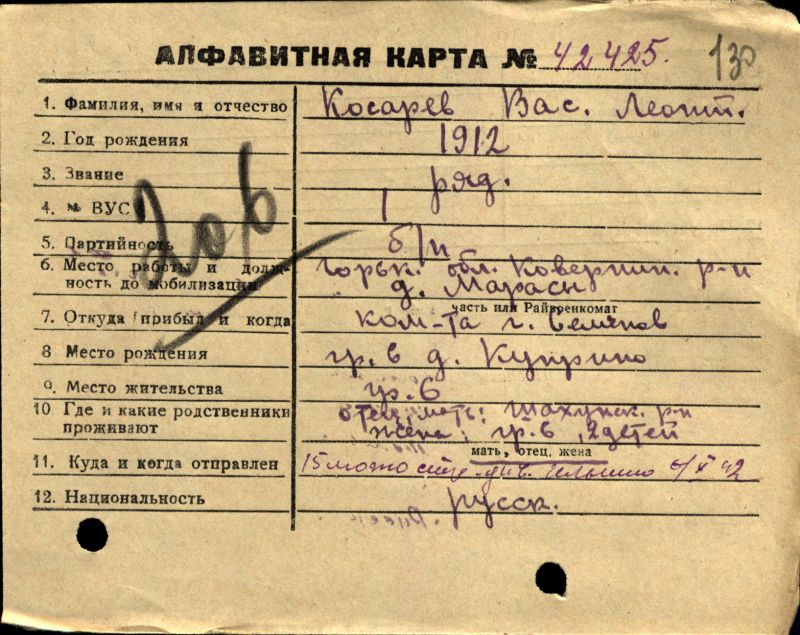 АЛФАВИТНАЯ КАРТА № 42425. 130
1. Фамилия, имя и отчество Косарев Вас. Леонт.
2. Год рождения 1912
3. Звание ряд.
4. № ВУС 1
5. Партийность б/п
6. Место работы и долж- горьк. обл. Ковернин. р-н
ность до мобилизации д. Марасн
часть или Райвоенкомат
7. Откуда прибыл и когда ком-та г.
8 Место рождения гр. 6 д. Куприно
9. Место жительства гр. 6
10. Где и какие родственники отец, мать: шахунск. р-н
проживают жена: гр. 6, 2 детей
мать, отец, жена
11. Куда и когда отправлен 15 мото стр. див. 6/X 42
12. Национальность русск.